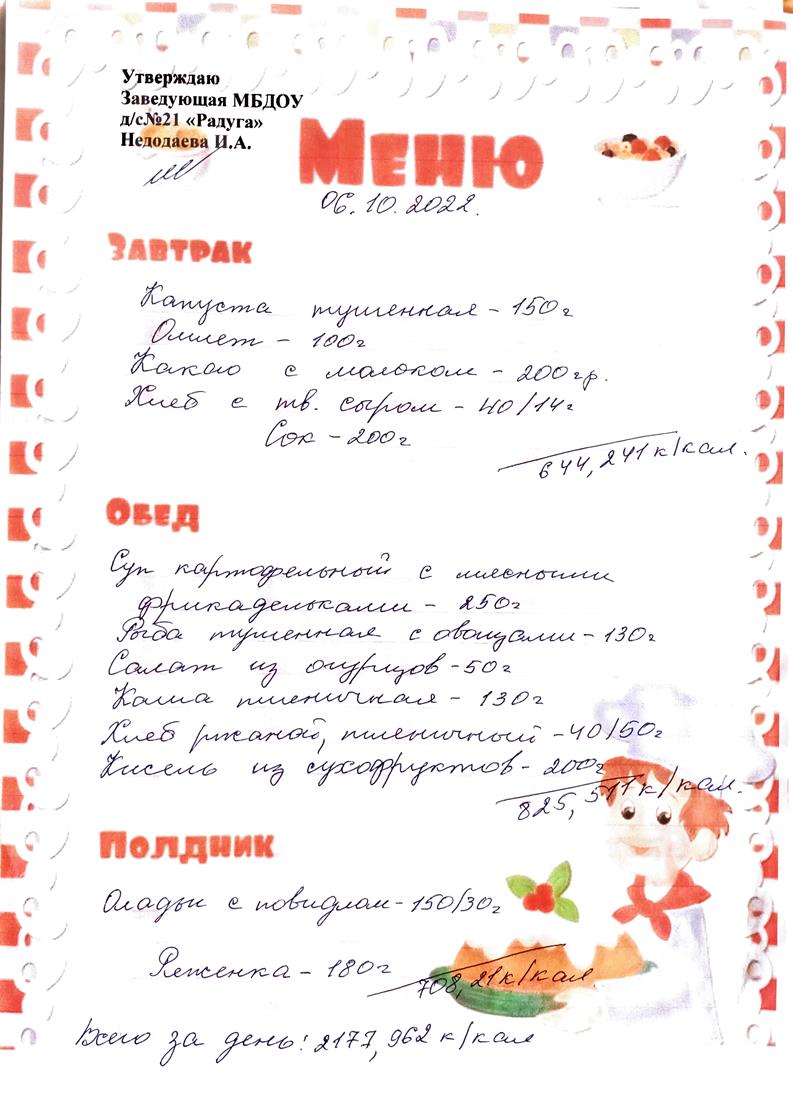 Утверждаю
Заведующая МБДОУ
д/с№21 «Радуга»
Недодаева И.А.
Меню
06.10.2022.
Завтрак
Капуста тушенная - 150г
Омлет - 100г
Какао с молоком - 200гр.
Хлеб с тв. сыром - 40/14г
Сок - 200г
644,241 к/кал.
Обед
Суп картофельный с мясными
фрикадельками - 250г
Рыба тушенная с овощами - 130г
Салат из огурцов - 50г
Каша пшеничная - 130г
Хлеб ржаной, пшеничный - 40/50г
Кисель из сухофруктов - 200г
825,511 к/кал.
Полдник
Оладьи с повидлом - 150/30г
Ряженка - 180г
708,21 к/кал.
Всего за день: 2177,962 к/кал